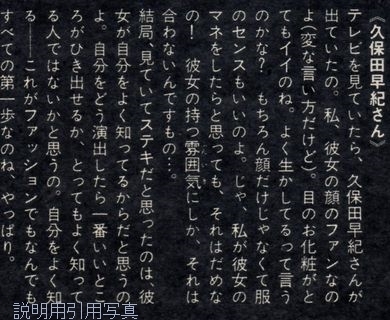 《久保田早紀さん》
テレビを見ていたら、久保田早紀さんが
出ていたの。私、彼女の顔のファンなの
よ(変な言い方だけど)。目のお化粧がと
てもイイのね。よく生かしてるって言う
のかな? もちろん顔だけじゃなくて服
のセンスもいいのよ。じゃ、私が彼女の
マネをしたらと思っても、それはだめな
の! 彼女の持つ雰囲気にしか、それは
合わないんですもの…。
結局、見ていてステキだと思ったのは彼
女が自分をよく知ってるからだと思うの
ね。自分をどう演出したら一番いいとこ
ろがひき出せるか、とってもよく知って
る人ではないかと思うの。自分をよく知
る――これがファッションでもなんでも
すべての第一歩なのね、やっぱり。
説明用引用写真